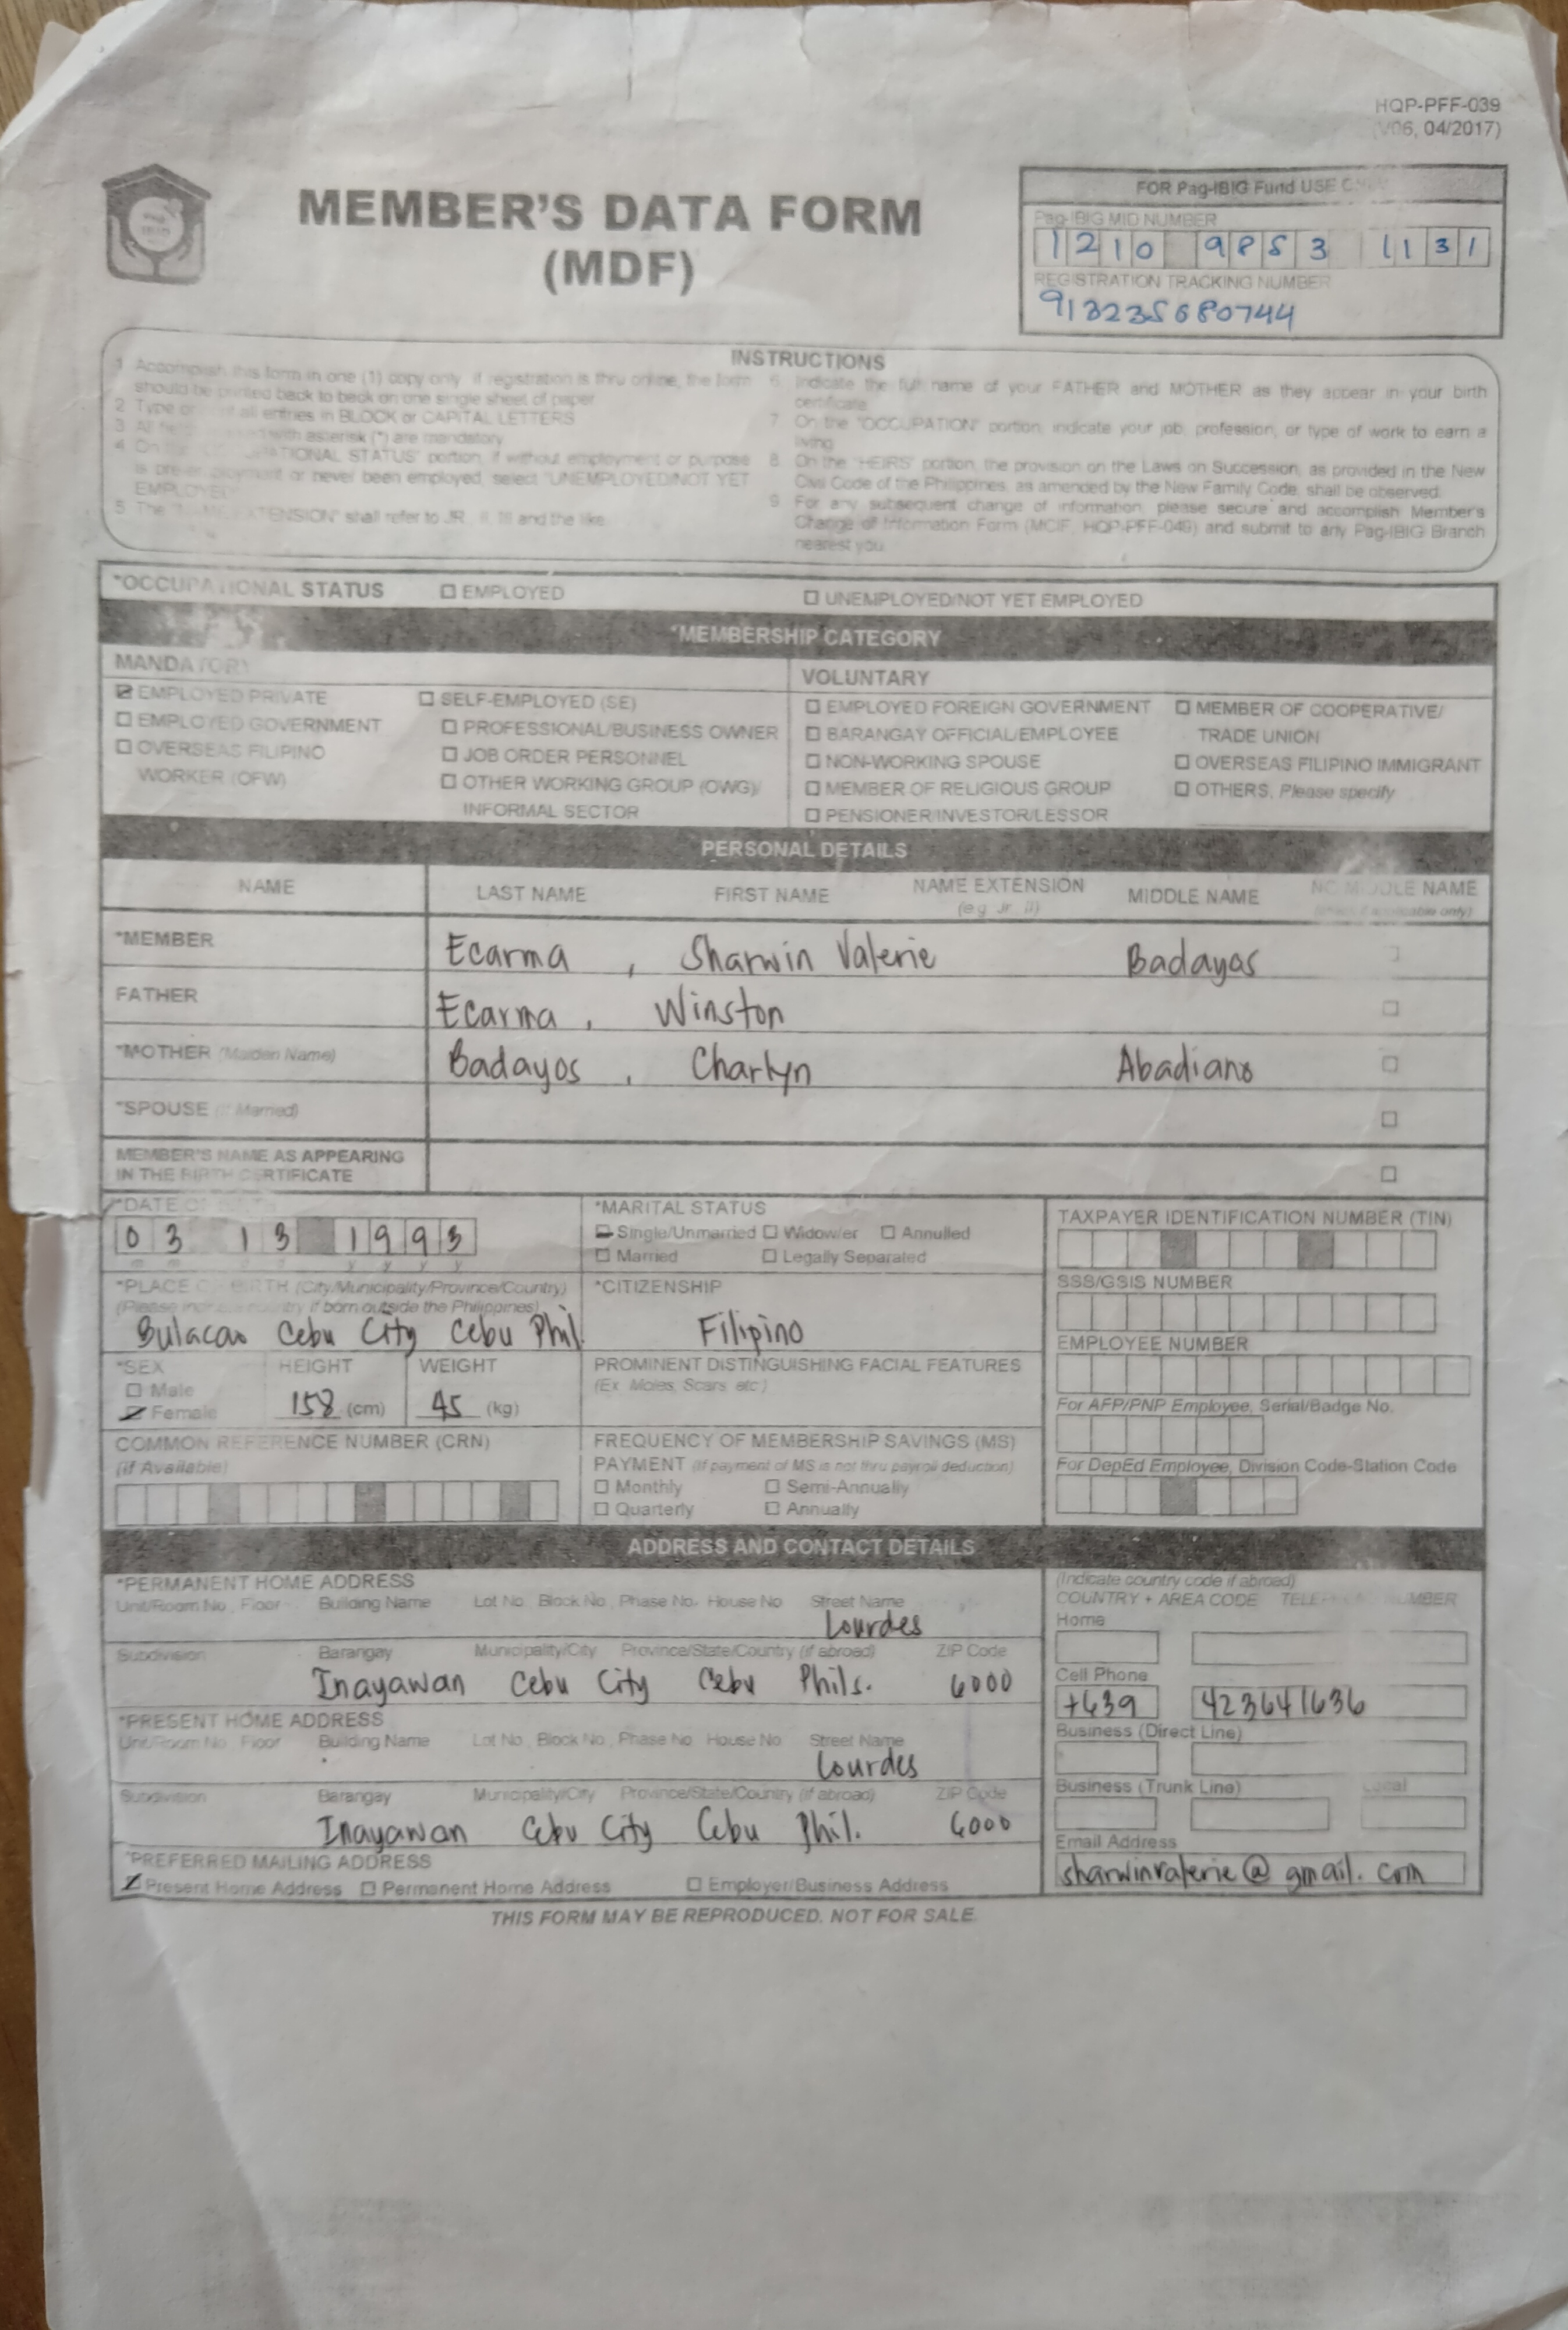 HQP-PFF-039
(V06, 04/2017)
MEMBER'S DATA FORM
(MDF)
FOR Pag-IBIG Fund USE
Pag-IBIG MID NUMBER
1210 9853 1131
REGISTRATION TRACKING NUMBER
913235680744
INSTRUCTIONS
1 Accomplish this form in one (1) copy only. If registration is thru online, the form
should be printed back to back on one single sheet of paper
2 Type or all entries in BLOCK or CAPITAL LETTERS
3 All with asterisk (*) are mandatory
4 On the STATUS" portion, if without employment or purpose
is or never been employed, select "UNEMPLOYED/NOT YET
EMPLOYED"
5 The EXTENSION" shall refer to JR., II, III and the like
6 Indicate the full name of your FATHER and MOTHER as they appear in your birth
certificate
7 On the "OCCUPATION" portion, indicate your job, profession, or type of work to earn a
living
8 On the "HEIRS" portion, the provision on the Laws on Succession, as provided in the New
Civil Code of the Philippines, as amended by the New Family Code, shall be observed.
9 For any subsequent change of information, please secure and accomplish Member's
Change of Information Form (MCIF, HQP-PFF-049) and submit to any Pag-IBIG Branch
nearest you.
*OCCUPATIONAL STATUS ☐ EMPLOYED ☐ UNEMPLOYED/NOT YET EMPLOYED
*MEMBERSHIP CATEGORY
MANDATORY
☑ EMPLOYED PRIVATE ☐ SELF-EMPLOYED (SE)
☐ EMPLOYED GOVERNMENT ☐ PROFESSIONAL/BUSINESS OWNER
☐ OVERSEAS FILIPINO ☐ JOB ORDER PERSONNEL
WORKER (OFW) ☐ OTHER WORKING GROUP (OWG)/
INFORMAL SECTOR
VOLUNTARY
☐ EMPLOYED FOREIGN GOVERNMENT ☐ MEMBER OF COOPERATIVE/
☐ BARANGAY OFFICIAL/EMPLOYEE TRADE UNION
☐ NON-WORKING SPOUSE ☐ OVERSEAS FILIPINO IMMIGRANT
☐ MEMBER OF RELIGIOUS GROUP ☐ OTHERS, Please specify
☐ PENSIONER/INVESTOR/LESSOR
PERSONAL DETAILS
NAME LAST NAME FIRST NAME NAME EXTENSION MIDDLE NAME NO MIDDLE NAME
(e.g. Jr., II) applicable only)
*MEMBER Ecarma , Sharwin Valerie Badayos
FATHER Ecarma , Winston ☐
*MOTHER (Maiden Name) Badayos , Charlyn Abadiano ☐
*SPOUSE (If Married) ☐
MEMBER'S NAME AS APPEARING
IN THE BIRTH CERTIFICATE ☐
*DATE
03 13 1993
m m y y y y
*MARITAL STATUS
☑ Single/Unmarried ☐ Widow/er ☐ Annulled
☐ Married ☐ Legally Separated
TAXPAYER IDENTIFICATION NUMBER (TIN)
*PLACE OF BIRTH (City/Municipality/Province/Country)
(Please indicate country if born outside the Philippines)
Bulacao Cebu City Cebu Phil.
*CITIZENSHIP
Filipino
SSS/GSIS NUMBER
EMPLOYEE NUMBER
*SEX HEIGHT WEIGHT
☐ Male
☑ Female 158 (cm) 45 (kg)
PROMINENT DISTINGUISHING FACIAL FEATURES
(Ex. Moles, Scars, etc.)
For AFP/PNP Employee, Serial/Badge No.
COMMON REFERENCE NUMBER (CRN)
(if Available)
FREQUENCY OF MEMBERSHIP SAVINGS (MS)
PAYMENT (If payment of MS is not thru payroll deduction)
☐ Monthly ☐ Semi-Annually
☐ Quarterly ☐ Annually
For DepEd Employee, Division Code-Station Code
ADDRESS AND CONTACT DETAILS
*PERMANENT HOME ADDRESS
Unit/Room No., Floor Building Name Lot No., Block No., Phase No., House No. Street Name
Lourdes
Subdivision Barangay Municipality/City Province/State/Country (if abroad) ZIP Code
Inayawan Cebu City Cebu Phils. 6000
*PRESENT HOME ADDRESS
Unit/Room No., Floor Building Name Lot No., Block No., Phase No., House No. Street Name
Lourdes
Subdivision Barangay Municipality/City Province/State/Country (if abroad) ZIP Code
Inayawan Cebu City Cebu Phil. 6000
*PREFERRED MAILING ADDRESS
☑ Present Home Address ☐ Permanent Home Address ☐ Employer/Business Address
(Indicate country code if abroad)
COUNTRY + AREA CODE TELEPHONE NUMBER
Home
Cell Phone
+639 423641636
Business (Direct Line)
Business (Trunk Line) Local
Email Address
sharwinvalerie@gmail.com
THIS FORM MAY BE REPRODUCED. NOT FOR SALE.